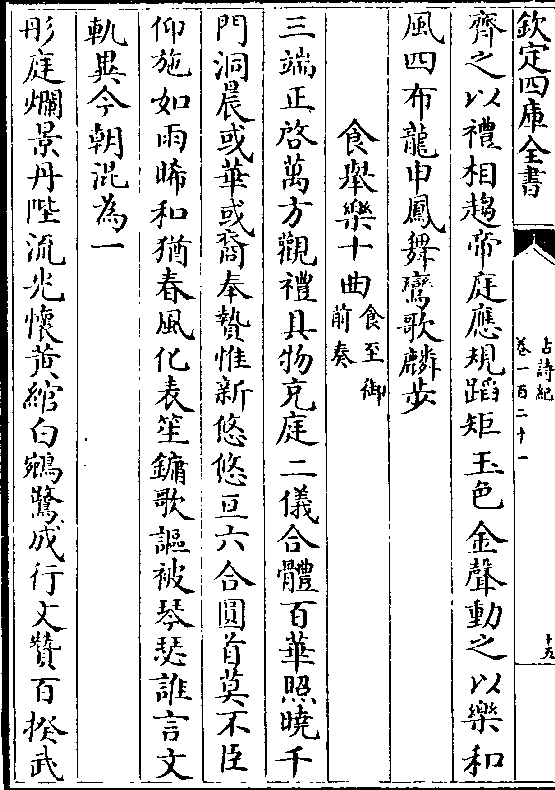 欽定四庫全書
古詩紀
卷一百二十一
十五
齊之以禮相趨帝庭應規蹈矩玉色金聲動之以樂和
風四布龍申鳳舞鸞歌麟步
食舉樂十曲食至御前奏
三端正啓萬方觀禮具物充庭二儀合體百華照曉千
門洞晨或華或裔奉贄惟新悠悠亘六合圓首莫不臣
仰施如雨晞和猶春風化表笙鏞歌謳被琴瑟誰言文
軌異今朝混為一
彤庭爛景丹陛流光懷黃綰白鵷鷺成行文贊百揆武